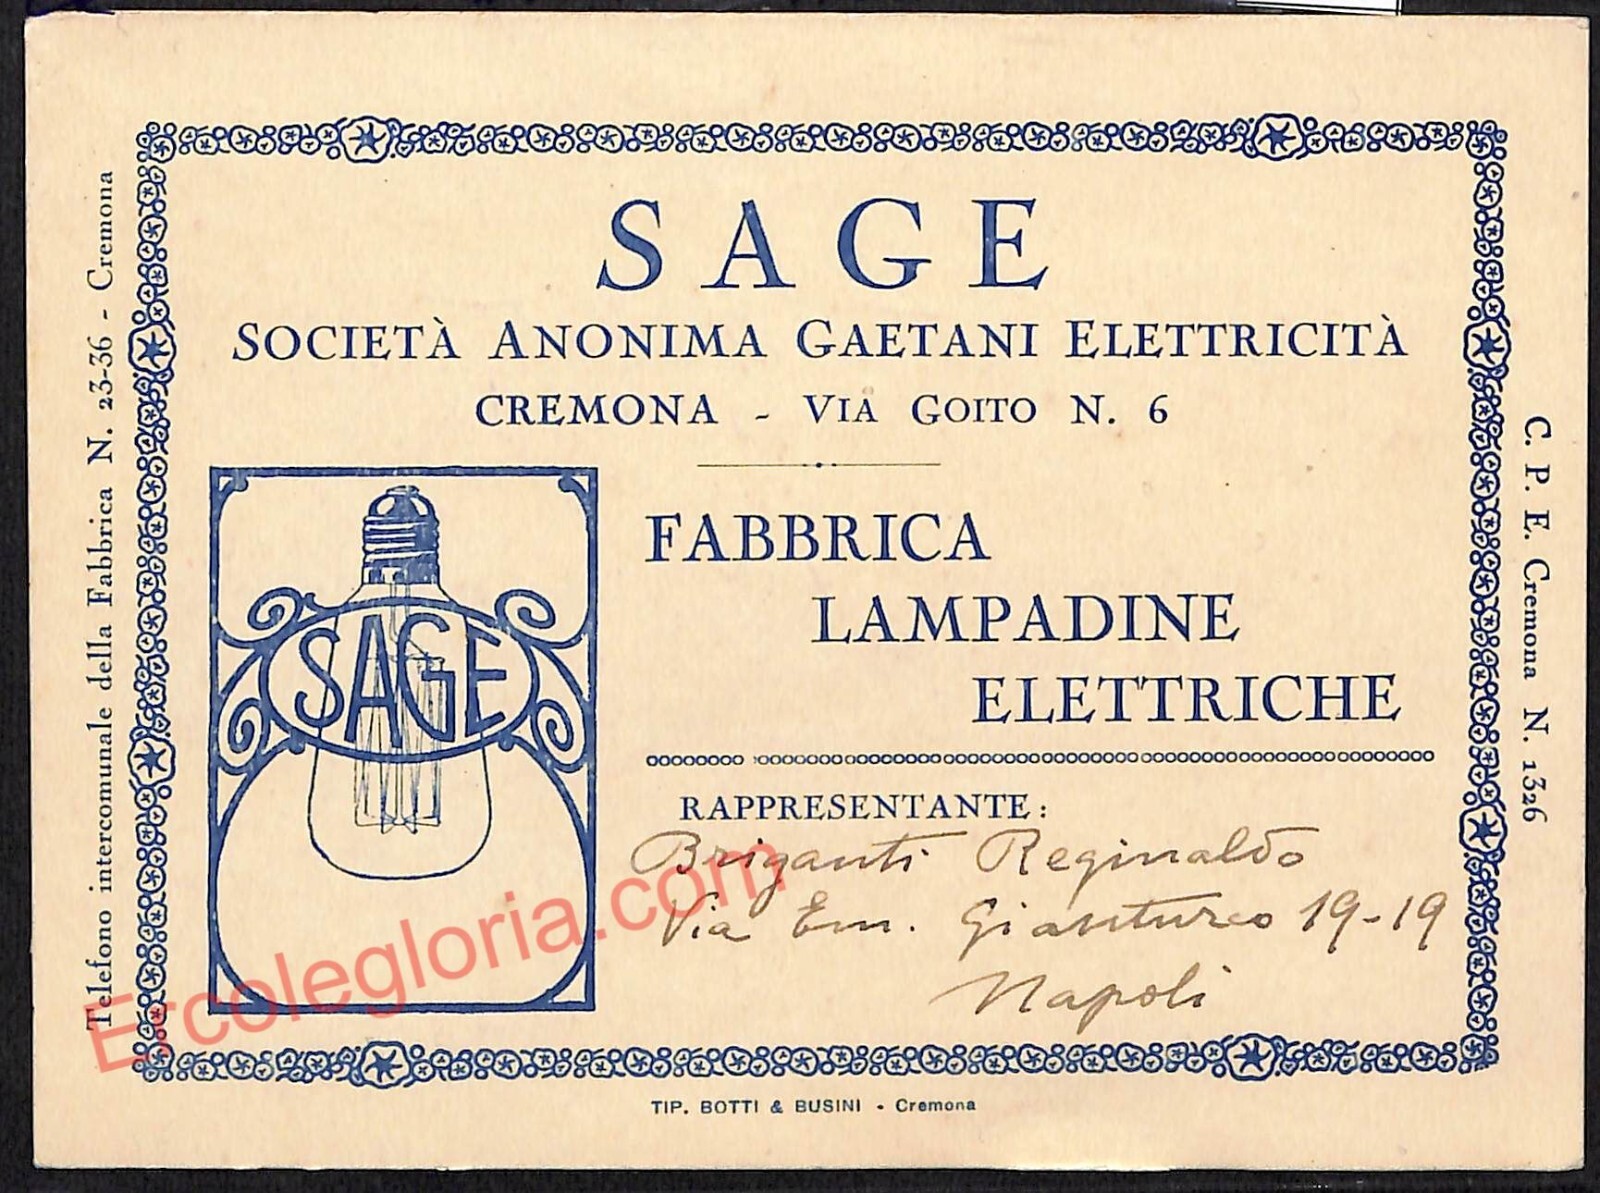 SAGE
SOCIETÀ ANONIMA GAETANI ELETTRICITÀ
CREMONA - VIA GOITO N. 6
SAGE
FABBRICA
LAMPADINE
ELETTRICHE
RAPPRESENTANTE:
Briganti Reginaldo
Via Em. Gianturco 19-19
Napoli
Telefono intercomunale della Fabbrica N. 23-36 - Cremona
C. P. E. Cremona N. 1326
TIP. BOTTI & BUSINI - Cremona
Ercolegloria.com